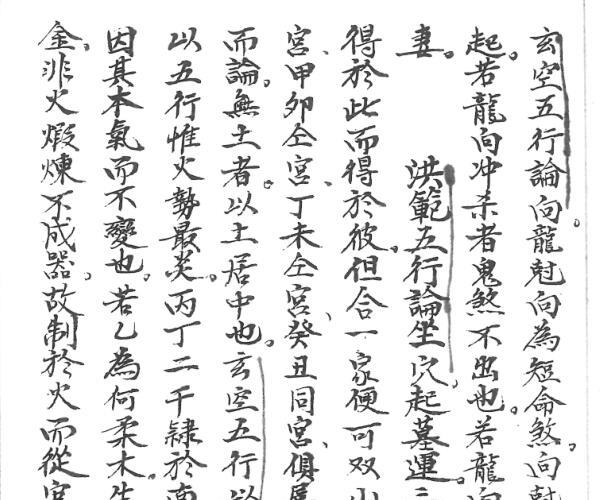 玄空五行論向龍尅向為短命煞向尅
起若龍向冲杀者鬼煞不出也若龍向
妻。 洪範五行論坐穴起墓運三
得於此而得於彼但合一家便可双山
宮、甲卯仝宮、丁未仝宮、癸丑同宮、俱屬
而論。無土者。以土居中也。玄空五行以
以五行惟火勢最炎。丙丁二干隸於南
因其本氣而不變也。若乙為何柔木。生
金、非火煅煉不成器。故制於火而從官